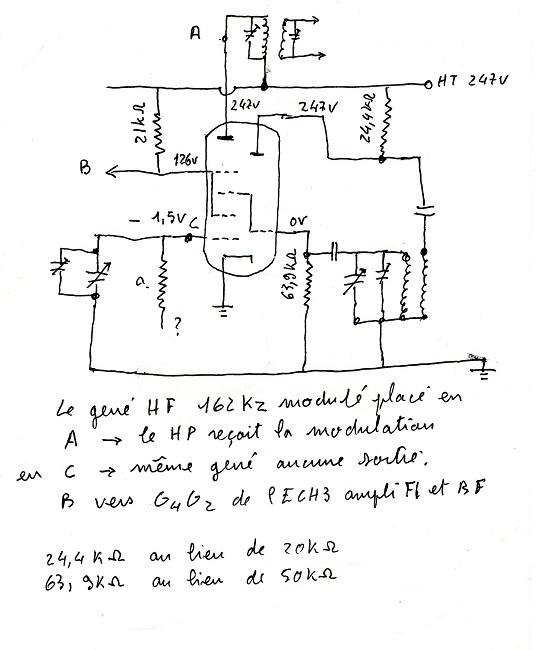 A
HT 247V
21kΩ
247V
247V
24,4kΩ
B
126V
- 1,5V C
0V
a.
63,9kΩ
?
Le géné HF 162Kz modulé placé en
A → le HP reçoit la modulation
en C → même géné aucune sortie.
B vers G4G2 de l'ECH3 ampli FI et BF
24,4KΩ au lieu de 20KΩ
63,9KΩ au lieu de 50KΩ